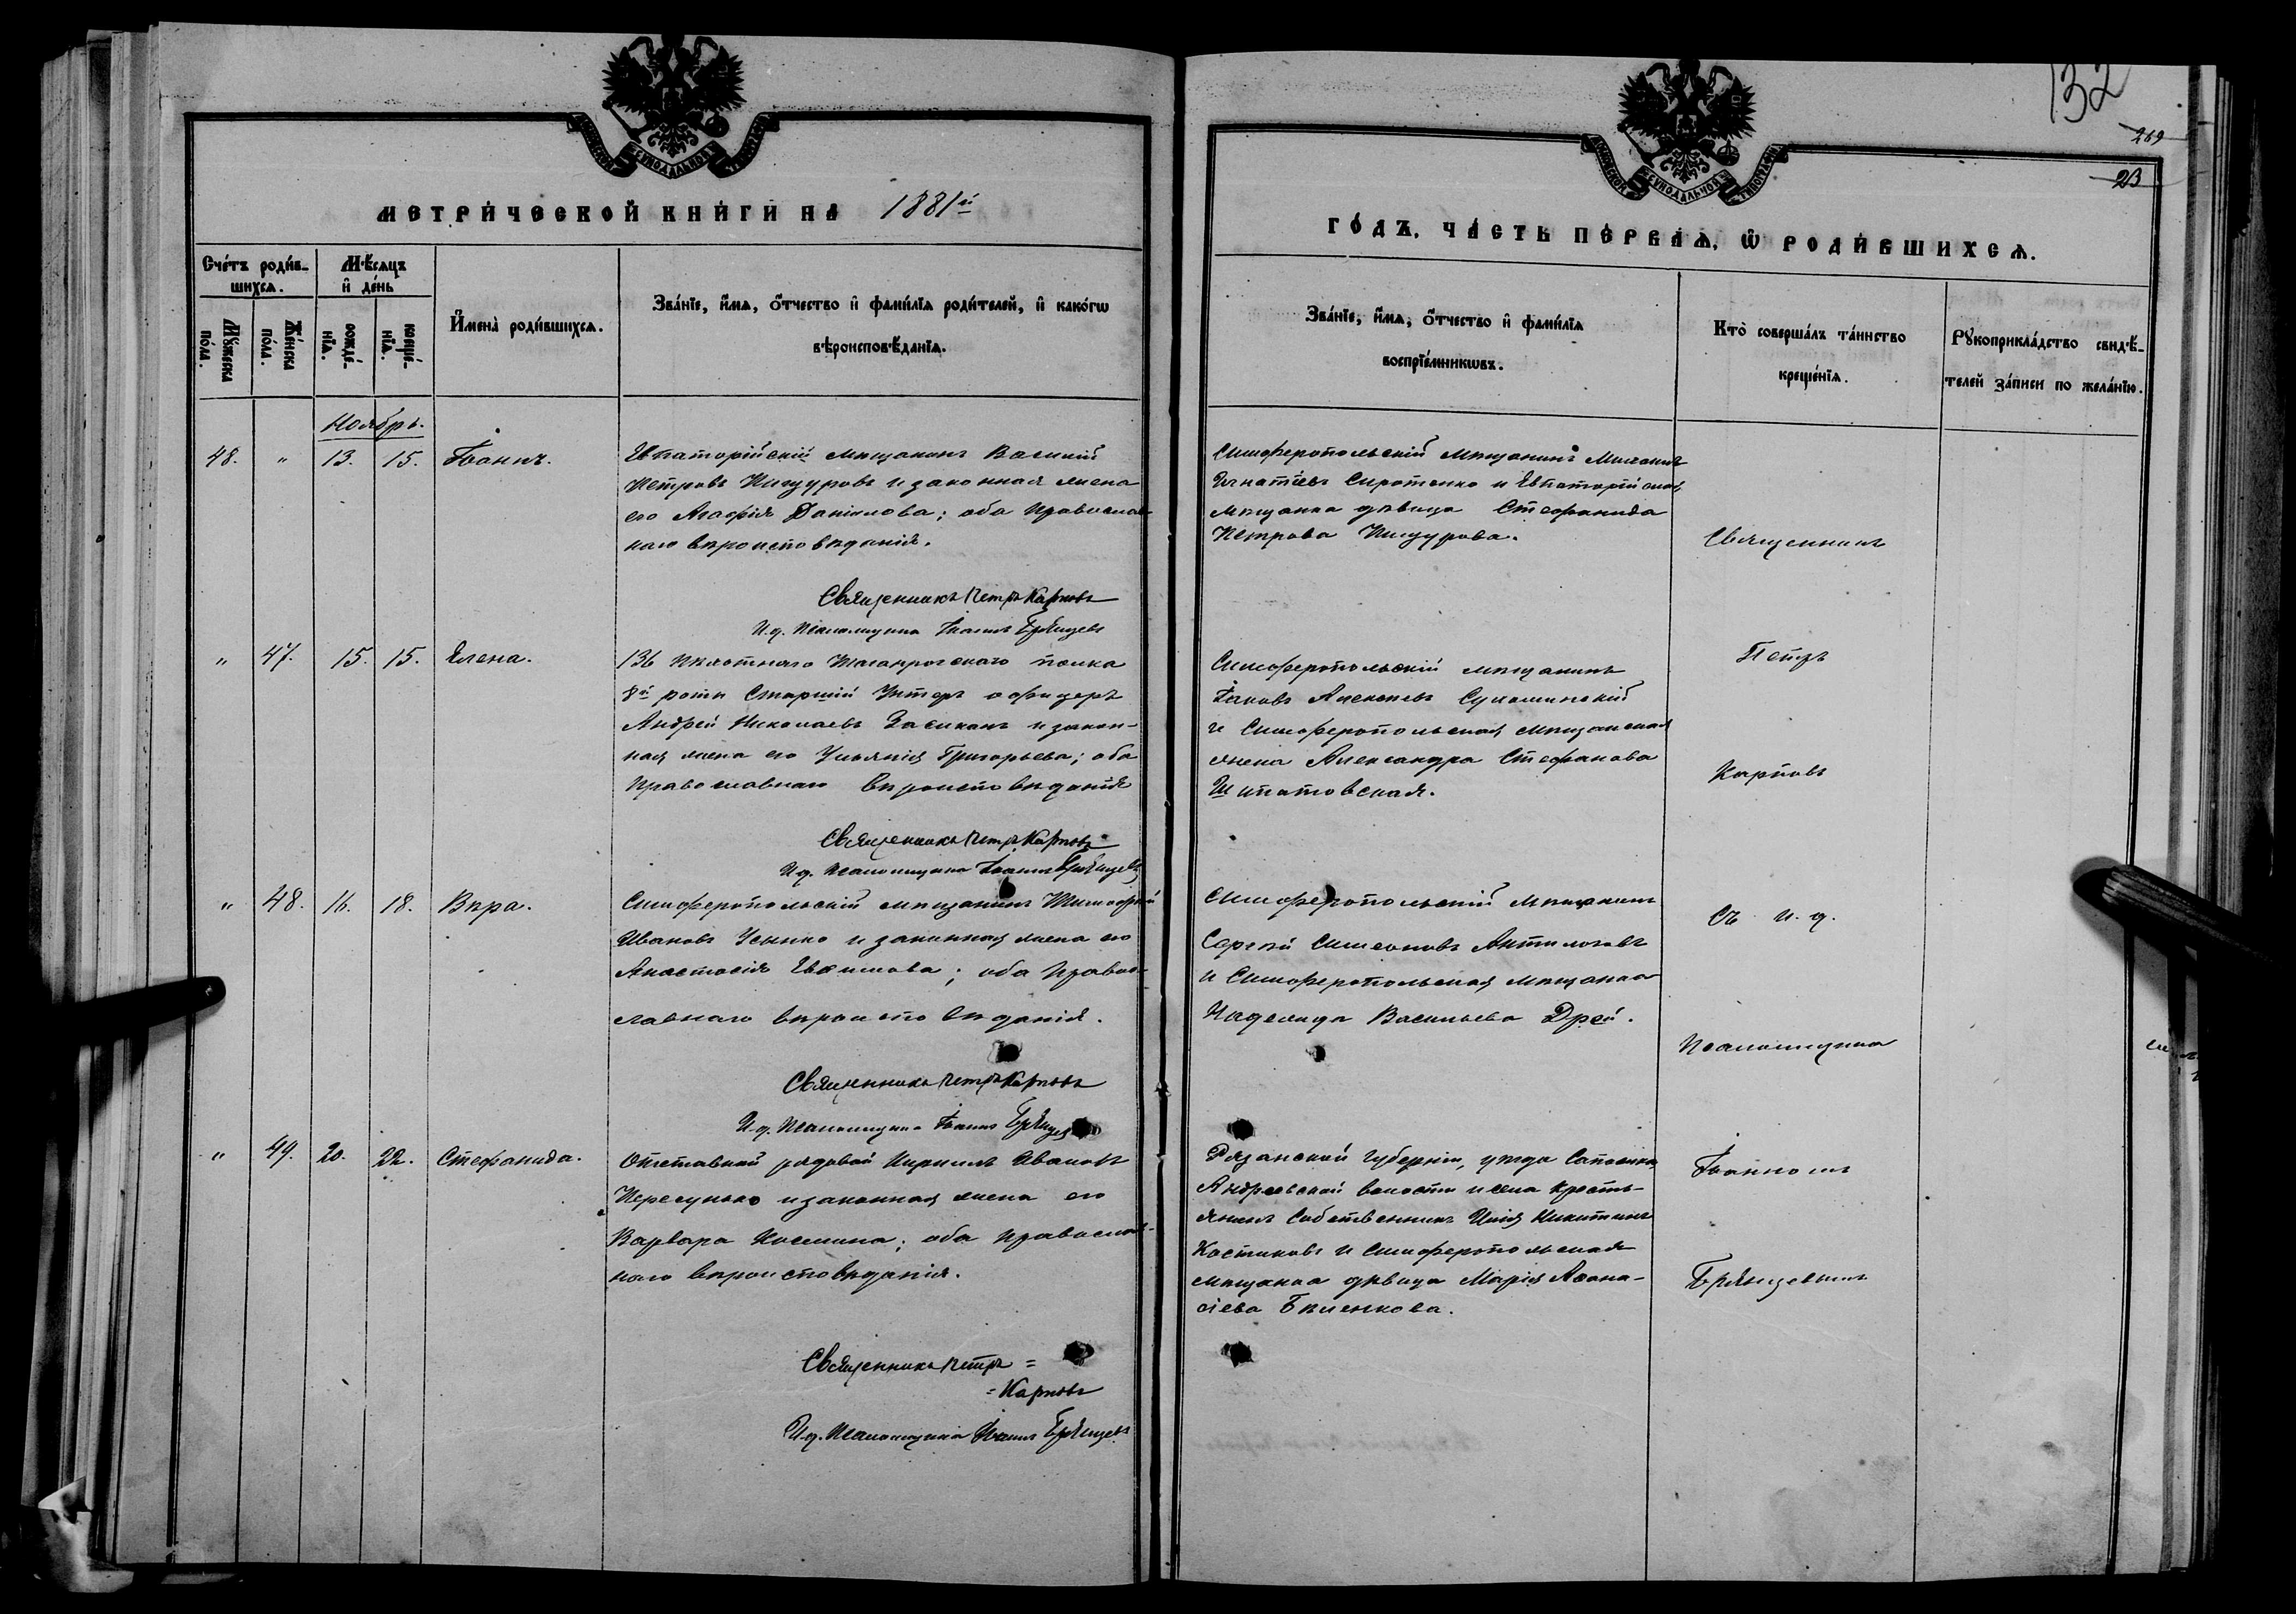 132
269
23
МЕТРИЧЕСКОЙ КНИГИ НА 1881й
ГОДЪ, ЧАСТЬ ПЕРВАЯ, Ѡ РОДИВШИХСЯ.
Счетъ родив-
шихся.
Мѣсяцъ
и день
Мꙋжеска
пола.
Женска
пола.
рожде-
нїя.
креще-
нїя.
Имена родившихся.
Званїе, имя, отчество и фамилїя родителей, и какогѡ
вѣроисповѣданїя.
Званїе, имя, отчество и фамилїя
воспрїемникѡвъ.
Кто совершалъ таинство
крещенїя.
Рꙋкоприкладство свидѣ-
телей записи по желанїю.
Ноябрь.
48. " 13. 15. Іоаннъ.
Евпаторійскій мѣщанинъ Василій
Петровъ и законная жена
его Агафія Даніилова; оба православ-
наго вѣроисповѣданія.
Священникъ Петръ Карповъ
И.д. Псаломщика Іоаннъ Брянцевъ
Симферопольскій мѣщанинъ Михаилъ
Игнатіевъ Сиротенко и Евпаторійская
мѣщанка дѣвица Стефанида
Петрова
" 47. 15. 15. Елена.
136 пѣхотнаго Таганрогскаго полка
8й роты Старшій Унтеръ офицеръ
Андрей Николаевъ и закон-
ная жена его Ульянія Григорьева; оба
православнаго вѣроисповѣданія
Священникъ Петръ Карповъ
И.д. Псаломщика Іоаннъ Брянцевъ
Симферопольскій мѣщанинъ
Іаковъ Алексѣевъ
и Симферопольская мѣщанская
жена Александра Стефанова
" 48. 16. 18. Вѣра.
Симферопольскій мѣщанинъ Тимофей
Ивановъ и законная жена его
Анастасія Евѳимова; оба право-
славнаго вѣроисповѣданія.
Священникъ Петръ Карповъ
И.д. Псаломщика Іоаннъ Брянцевъ
Симферопольскій мѣщанинъ
Сергѣй Симеоновъ
и Симферопольская мѣщанка
Надежда Васильева Дрей.
" 49. 20. 22. Стефанида.
Отставной рядовой Кириллъ Ивановъ
и законная жена его
Варвара Косьмина; оба православ-
наго вѣроисповѣданія.
Священникъ Петръ =
= Карповъ
И.д. Псаломщика Іоаннъ Брянцевъ
Рязанской губерніи, уѣзда
Андреевской волости и села кресть-
янинъ собственникъ Илія Никитинъ
Костиковъ и Симферопольская
мѣщанка дѣвица Марія Аѳана-
сіева
Священникъ
Петръ
Карповъ
съ и.д.
Псаломщика
Іоанномъ
Брянцевымъ